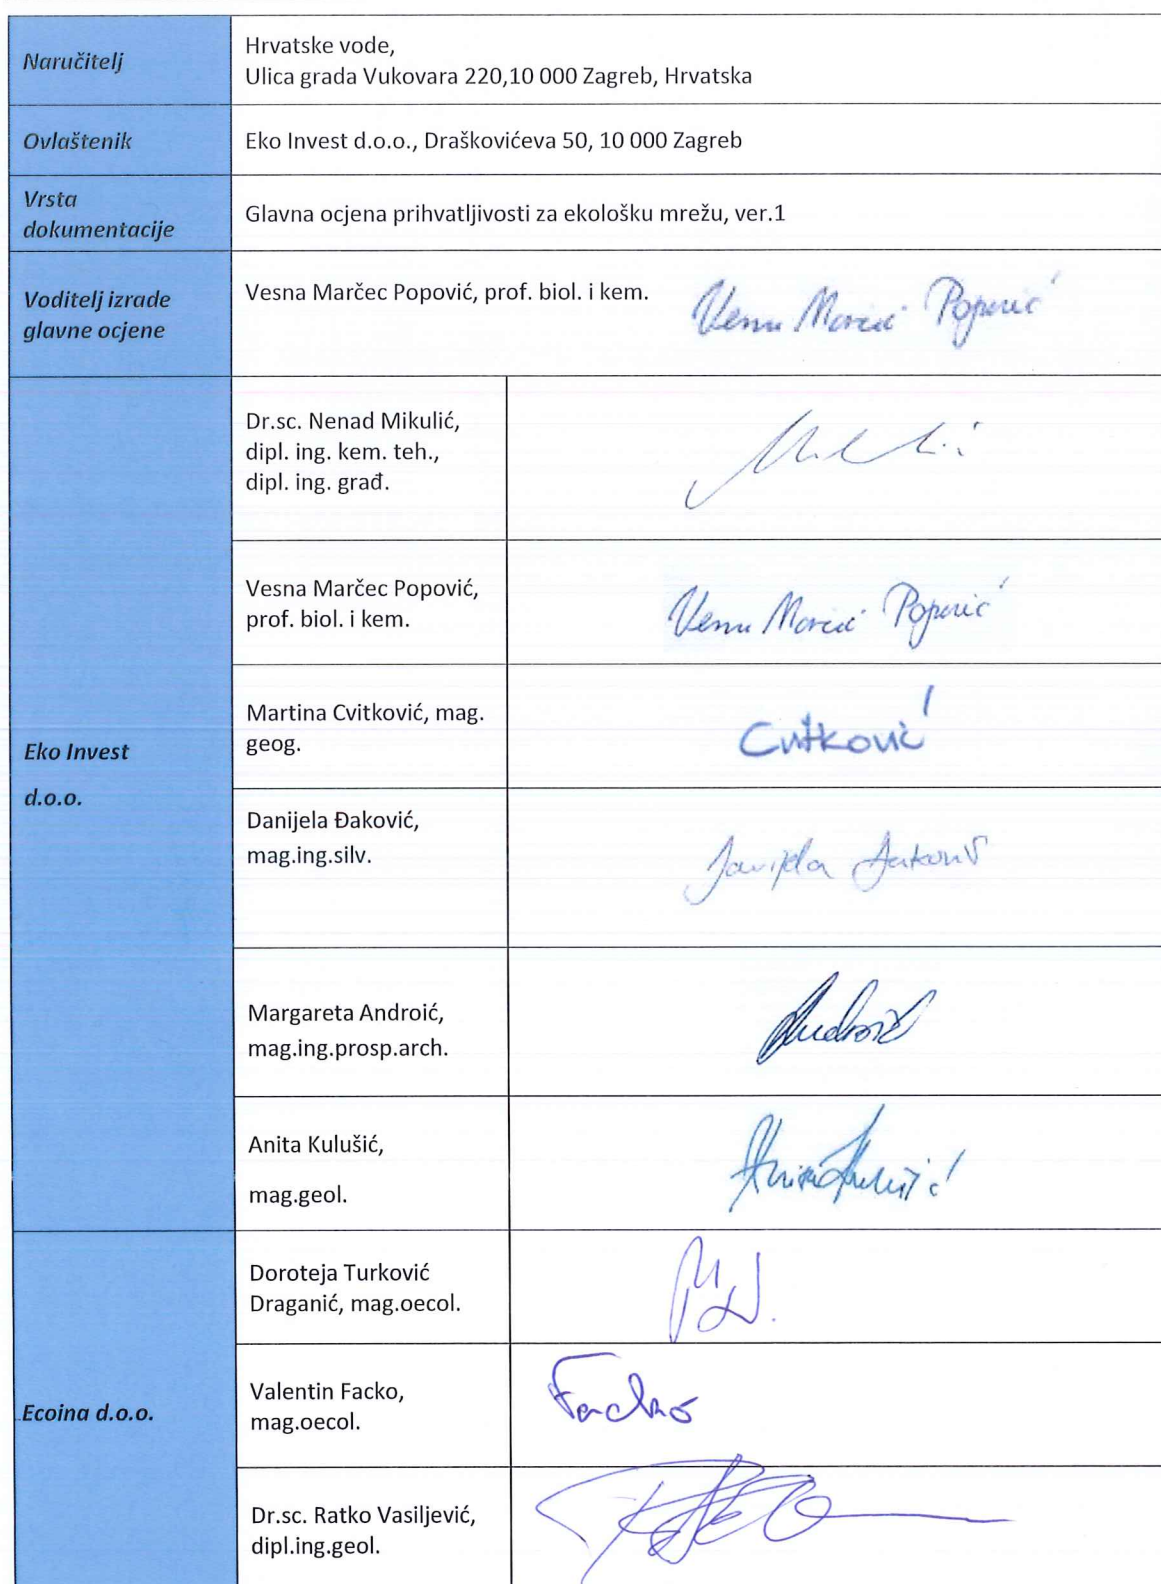 Naručitelj
Hrvatske vode,
Ulica grada Vukovara 220,10 000 Zagreb, Hrvatska
Ovlaštenik
Eko Invest d.o.o., Draškovićeva 50, 10 000 Zagreb
Vrsta
dokumentacije
Glavna ocjena prihvatljivosti za ekološku mrežu, ver.1
Voditelj izrade
glavne ocjene
Vesna Marčec Popović, prof. biol. i kem.
Eko Invest
d.o.o.
Dr.sc. Nenad Mikulić,
dipl. ing. kem. teh.,
dipl. ing. građ.
Vesna Marčec Popović,
prof. biol. i kem.
Martina Cvitković, mag.
geog.
Cvitković
Danijela Đaković,
mag.ing.silv.
Margareta Androić,
mag.ing.prosp.arch.
Anita Kulušić,
mag.geol.
Ecoina d.o.o.
Doroteja Turković
Draganić, mag.oecol.
Valentin Facko,
mag.oecol.
Facko
Dr.sc. Ratko Vasiljević,
dipl.ing.geol.